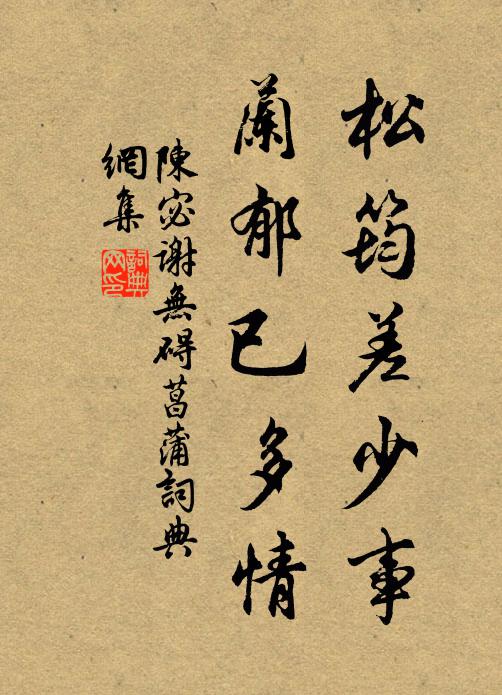 松筠差少事
蘭郁已多情
陳宓謝無碍菖蒲詞典
網集
詞典
网印